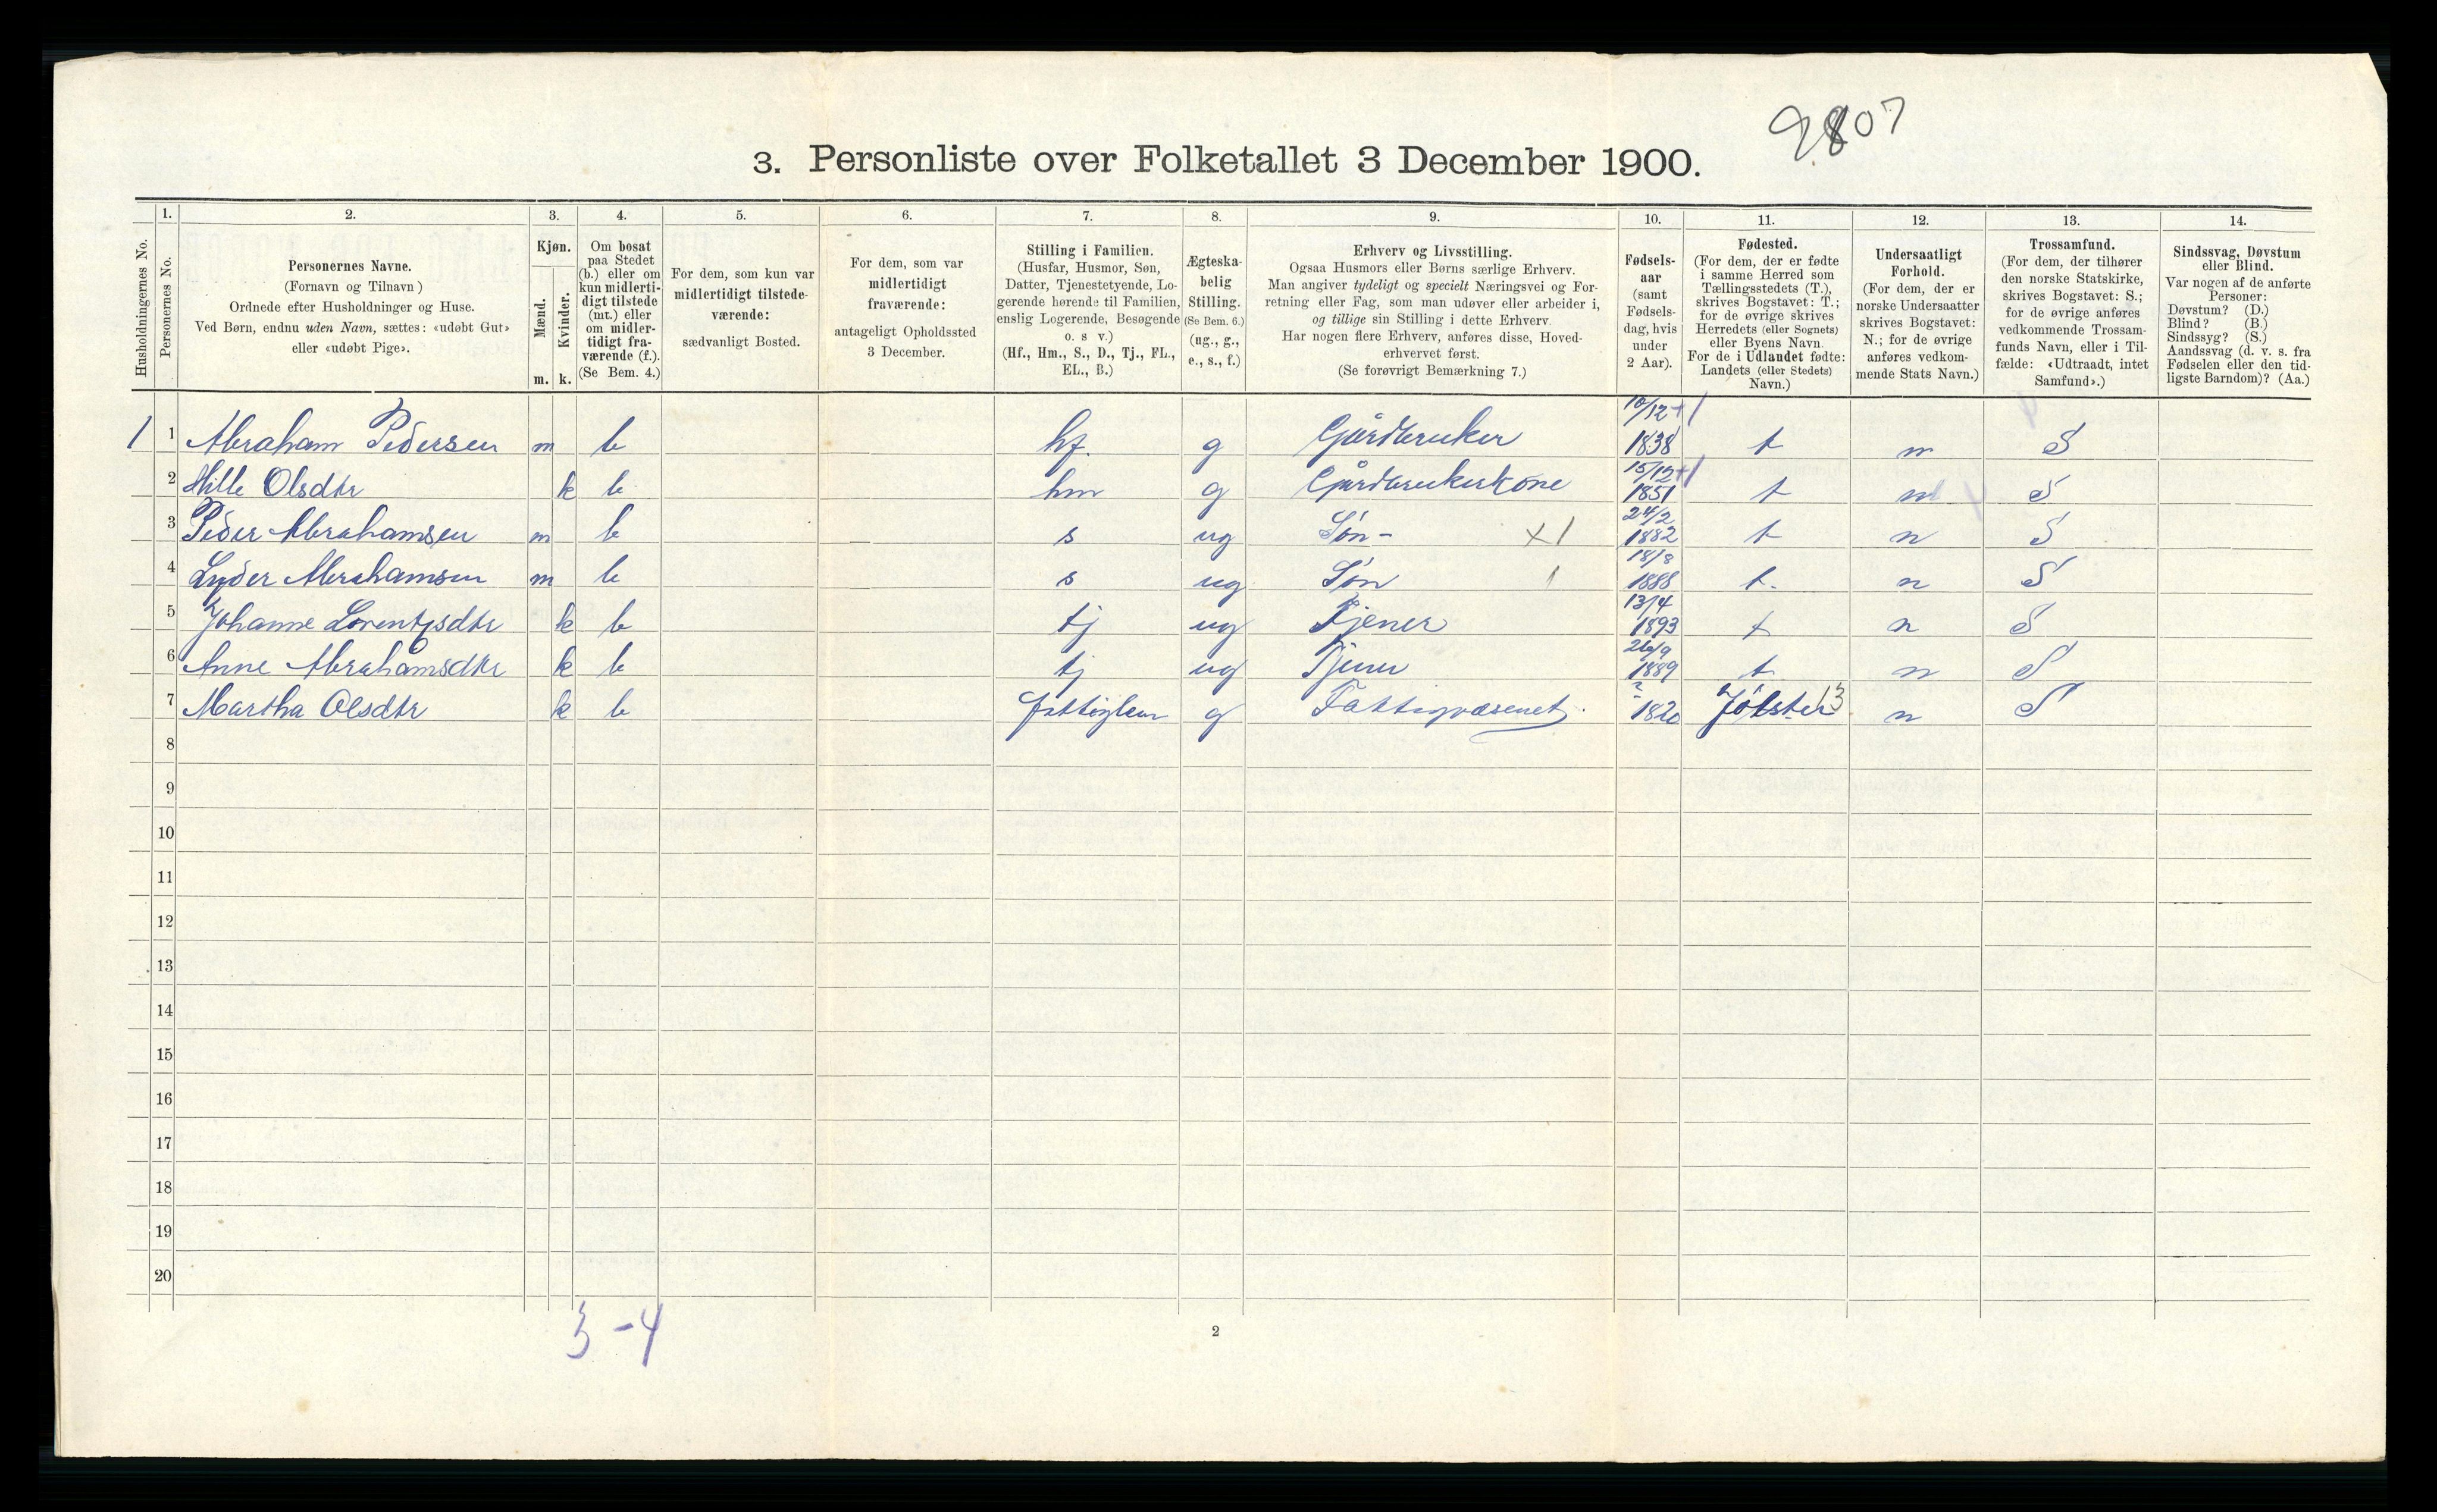 9807
3. Personliste over Folketallet 3 December 1900.
1. 2. 3. 4. 5. 6. 7. 8. 9. 10. 11. 12. 13. 14.
Husholdningernes No.
Personernes No.
Personernes Navne.
(Fornavn og Tilnavn)
Ordnede efter Husholdninger og Huse.
Ved Børn, endnu uden Navn, sættes: «udøbt Gut»
eller «udøbt Pige».
Kjøn.
Mænd.
Kvinder.
m. k.
Om bosat
paa Stedet
(b.) eller om
kun midlerti-
digt tilstede
(mt.) eller
om midler-
tidigt fra-
værende (f.).
(Se Bem. 4.)
For dem, som kun var
midlertidigt tilstede-
værende:
sædvanligt Bosted.
For dem, som var
midlertidigt
fraværende:
antageligt Opholdssted
3 December.
Stilling i Familien.
(Husfar, Husmor, Søn,
Datter, Tjenestetyende, Lo-
gerende hørende til Familien,
enslig Logerende, Besøgende
o. s v.)
(Hf., Hm., S., D., Tj., FL.,
EL., B.)
Ægteska-
belig
Stilling.
(Se Bem. 6.)
(ug., g.,
e., s., f.)
Erhverv og Livsstilling.
Ogsaa Husmors eller Børns særlige Erhverv.
Man angiver tydeligt og specielt Næringsvei og For-
retning eller Fag, som man udøver eller arbeider i,
og tillige sin Stilling i dette Erhverv.
Har nogen flere Erhverv, anføres disse, Hoved-
erhvervet først.
(Se forøvrigt Bemærkning 7.)
Fødsels-
aar
(samt
Fødsels-
dag, hvis
under
2 Aar).
Fødested.
(For dem, der er fødte
i samme Herred som
Tællingsstedets (T.),
skrives Bogstavet: T.;
for de øvrige skrives
Herredets (eller Sognets)
eller Byens Navn.
For de i Udlandet fødte:
Landets (eller Stedets)
Navn.)
Undersaatligt
Forhold.
(For dem, der er
norske Undersaatter
skrives Bogstavet:
N.; for de øvrige
anføres vedkom-
mende Stats Navn.)
Trossamfund.
(For dem, der tilhører
den norske Statskirke,
skrives Bogstavet: S.;
for de øvrige anføres
vedkommende Trossam-
funds Navn, eller i Til-
fælde: «Udtraadt, intet
Samfund».)
Sindssvag, Døvstum
eller Blind.
Var nogen af de anførte
Personer:
Døvstum? (D.)
Blind? (B.)
Sindssyg? (S.)
Aandssvag (d. v. s. fra
Fødselen eller den tid-
ligste Barndom)? (Aa.)
1 1 Abraham Pedersen m b hf. g Gårdbruker 10/12 +1 1838 t n S
2 Mille Olsdtr k b hm g Gårdbrukerkone 15/12 +1 1851 t n S
3 Peder Abrahamsen m b s ug Søn - x1 24/2 1882 t n S
4 Lyder Abrahamsen m b s ug Søn 1 18/8 1888 t. n S
5 Johanne Lorentzsdtr k b tj ug Tjener 13/4 1893 t n S
6 Anne Abrahamsdtr k b tj ug Tjener 26/9 1889 t n S
7 Martha Olsdtr k b fattiglem g Fattigvæsenet. ? 1820 Jölster 13 n S
8
9
10
11
12
13
14
15
16
17
18
19
20
3-4
2